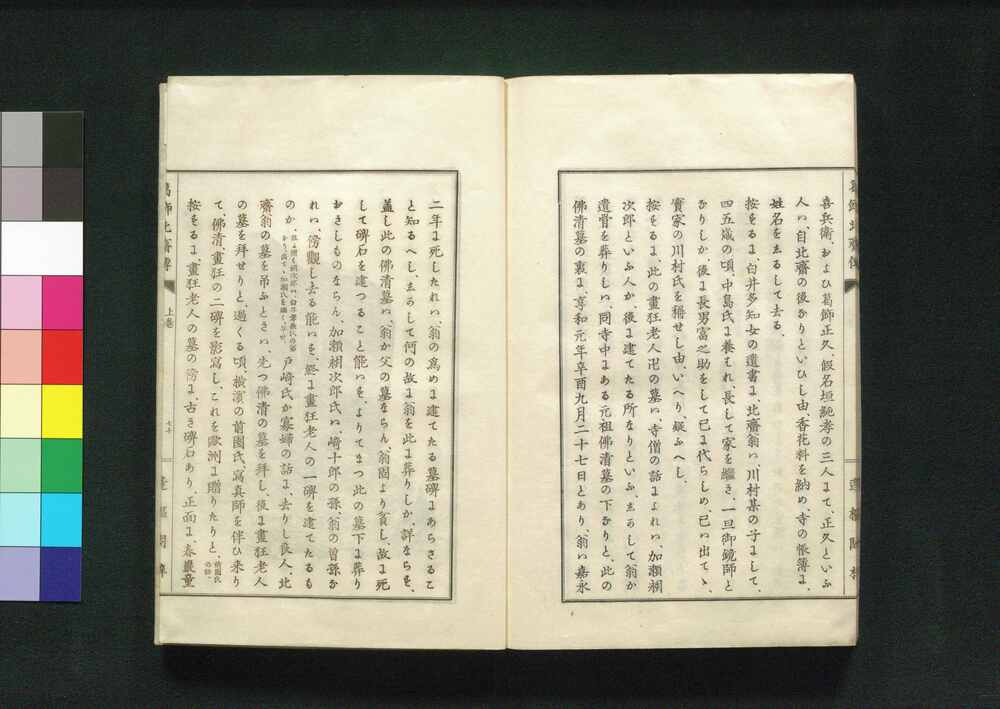 喜兵衛、および葛飾正久、假名垣純孝の三人にて、正久といふ
人ハ、自北齋の後なりといひし由、香花料を納め、寺の帳簿に、
姓名をしるして去る、
按するに、白井多知女の遺書に、北齋翁ハ、川村某の子にして、
四五歳の頃、中島氏に養はれ、長して家を繼き、一旦御鏡師と
なりしか、後に長男富之助をして已に代らしめ、已ハ出てゝ、
實家の川村氏を稱せし由、いへり、疑ふへし、
按するに、此の畫狂老人卍の墓ハ、寺僧の話によれハ、加瀬昶
次郎といふ人か、後に建てたる所なりといふ、しかして、翁か
遺骨を葬りしハ、同寺中にある元祖佛清墓の下なりと、此の
佛清墓の裏に、享和元年辛酉九月二十七日とあり、翁ハ嘉永
二年に死したれハ、翁の爲めに建てたる墓碑にあらさるこ
と知るへし、しかして何の故に翁を此に葬りしか、詳ならす、
蓋し此の佛清墓ハ、翁か父の墓ならん、翁固より貧し、故に死
して碑石を建つること能ハす、よりてまつ此の墓下に葬り
おきしものならん、加瀬昶次郎氏ハ、崎十郎の孫、翁の曾孫な
れハ、傍觀し去る能ハす、終に畫狂老人の一碑を建てたるも
のか、
戸崎氏か寡婦の話に、去りし良人、北
齋翁の墓を吊ふときハ、先つ佛清の墓を拜し、後に畫狂老人
の墓を拜せりと、過くる頃、横濱の前園氏、寫真師を伴ひ來り
て、佛清、畫狂の二碑を影寫し、これを歐洲に贈りたりと、前園氏の話、
按するに、畫狂老人の墓の傍に、古き碑石あり、正面に、春巖童
葛飾北齋傳
上巻